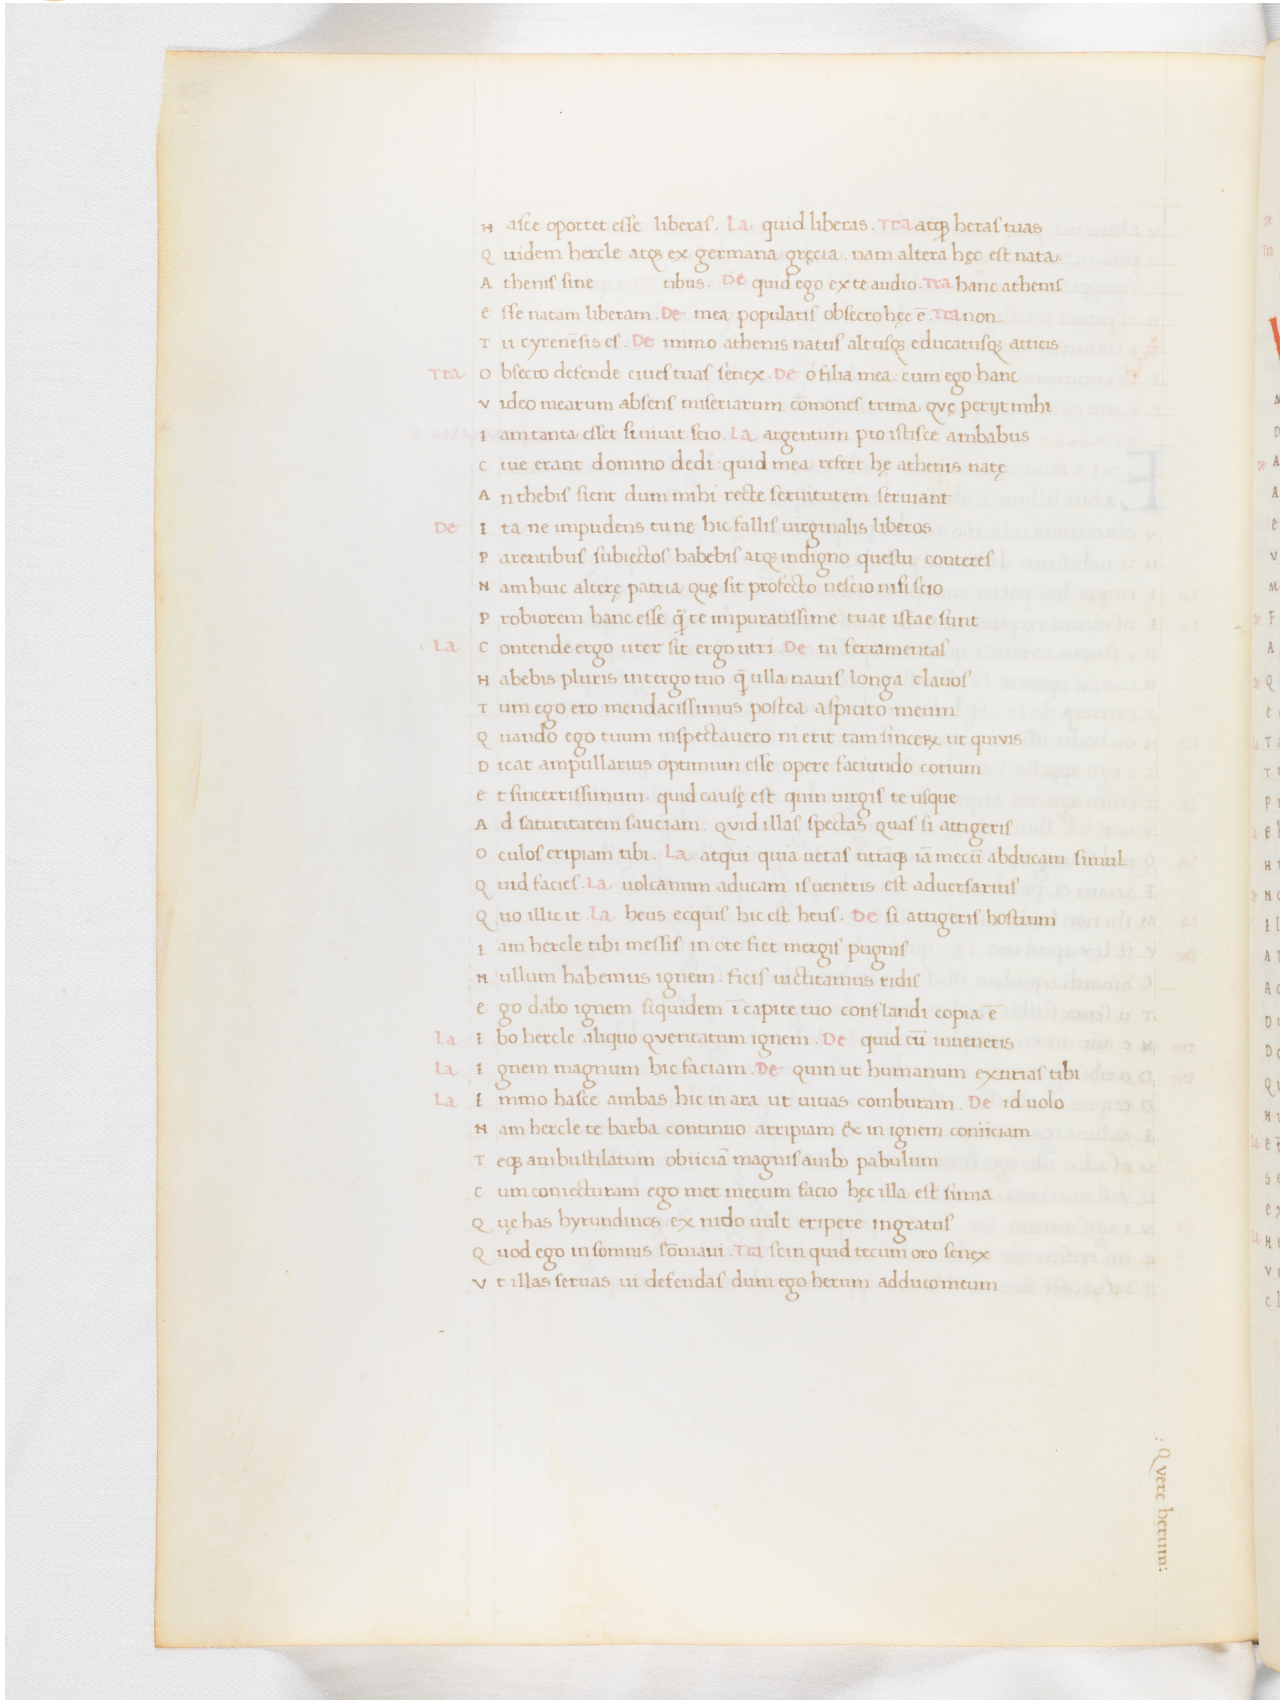 H asce oportet esse liberas. La quid liberas. Tra atqꝫ heras tuas
Q uidem hercle atqꝫ ex germana gręcia. nam altera hęc est nata.
A thenis sine tibus. De quid ego ex te audio. Tra hanc athenis
e sse natam liberam. De mea popularis obsecro hęc ē. Tra non
T u cyrenēsis es. De immo athenis natus altusqꝫ educatusqꝫ atticis
Tra O bsecro defende ciues tuas senex. De ó filia mea: cum ego hanc
V ideo mearum absens miseriarum cōmones trima qvę perijt mihi
I am tanta esset si uiuit scio. La argentum pro istisce ambabus
C uie erant domino dedi: quid mea refert hę athenis natę
A n thebis sient dum mihi recte seruitutem seruiant
De I ta ne impudens tu ne hic fallis uirginalis liberos
P arentibus subiectos habebis atqꝫ indigno questu conteres
H am huic alterę patria quę sit profecto nescio nisi scio
P robiorem hanc esse q̄ te impuratissime tuae istae sunt
La C ontende ergo uter sit ergo utri De ni ferramentas
H abebis pluris in tergo tuo q̄ ulla nauis longa clauos
T um ego ero mendacissimus postea aspicito meum
Q uando ego tuum inspectauero ni erit tam sinceꝝ ut quivis
D icat ampullarius optimum esse opere faciundo corium
e t sincerissimum. quid causę est quin uirgis te usque
A d saturitatem sauciam. qvid illas spectas quas si attigeris
O culos eripiam tibi. La atqui quia uetas utrāqꝫ iā mecū abducam simul
Q uid facies. La uolcanum aducam is ueneris est aduersarius
Q uo illic it. La heus ecquis hic est heus. De si attigeris hostium
I am hercle tibi messis in ore fiet mergis pugnis
H ullum habemus ignem. ficis uictitamus ridis
e go dabo ignem siquidem ī capite tuo conflandi copia ē
La I bo hercle aliquo qveritatum ignem. De quid cū inueneris
La I gnem magnum hic faciam. De quin ut humanum exurias tibi
La I mmo hasce ambas hic in ara ut uiuas comburam. De id uolo
H am hercle te barba continuo arripiam & in ignem coniiciam
T eqꝫ ambustilatum obiiciā magnis auibꝫ pabulum
C um coniecturam ego met mecum facio hęc illa est simia
Q uę has hyrundines ex nido uult eripere ingratus
Q uod ego in somnis sōmiaui. Tra scin quid tecum oro senex
V t illas seruas ui defendas dum ego herum adduco meum
: Q vere herum: